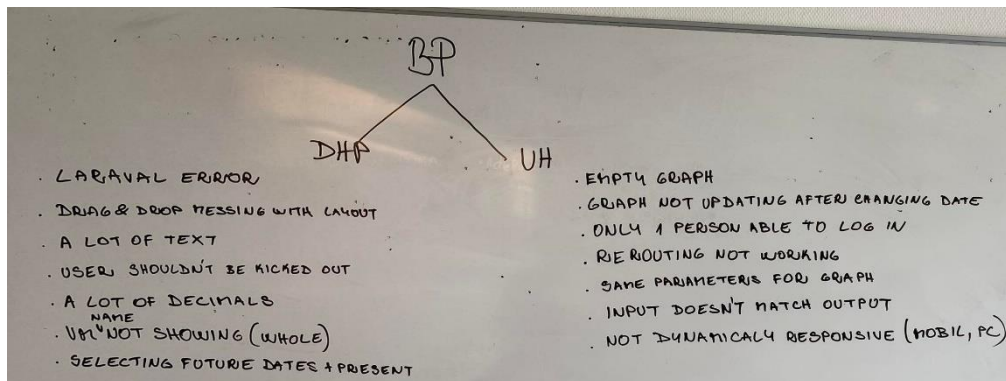 BP
DHP
UH
. LARAVAL ERROR
. DRAG & DROP MESSING WITH LAYOUT
. A LOT OF TEXT
. USER SHOULDN'T BE KICKED OUT
. A LOT OF DECIMALS
NAME
. NOT SHOWING (WHOLE)
. SELECTING FUTURE DATES + PRESENT
. EMPTY GRAPH
. GRAPH NOT UPDATING AFTER CHANGING DATE
. ONLY 1 PERSON ABLE TO LOG IN
. REROUTING NOT WORKING
. SAME PARAMETERS FOR GRAPH
. INPUT DOESN'T MATCH OUTPUT
. NOT DYNAMICALY RESPONSIVE (MOBIL, PC)